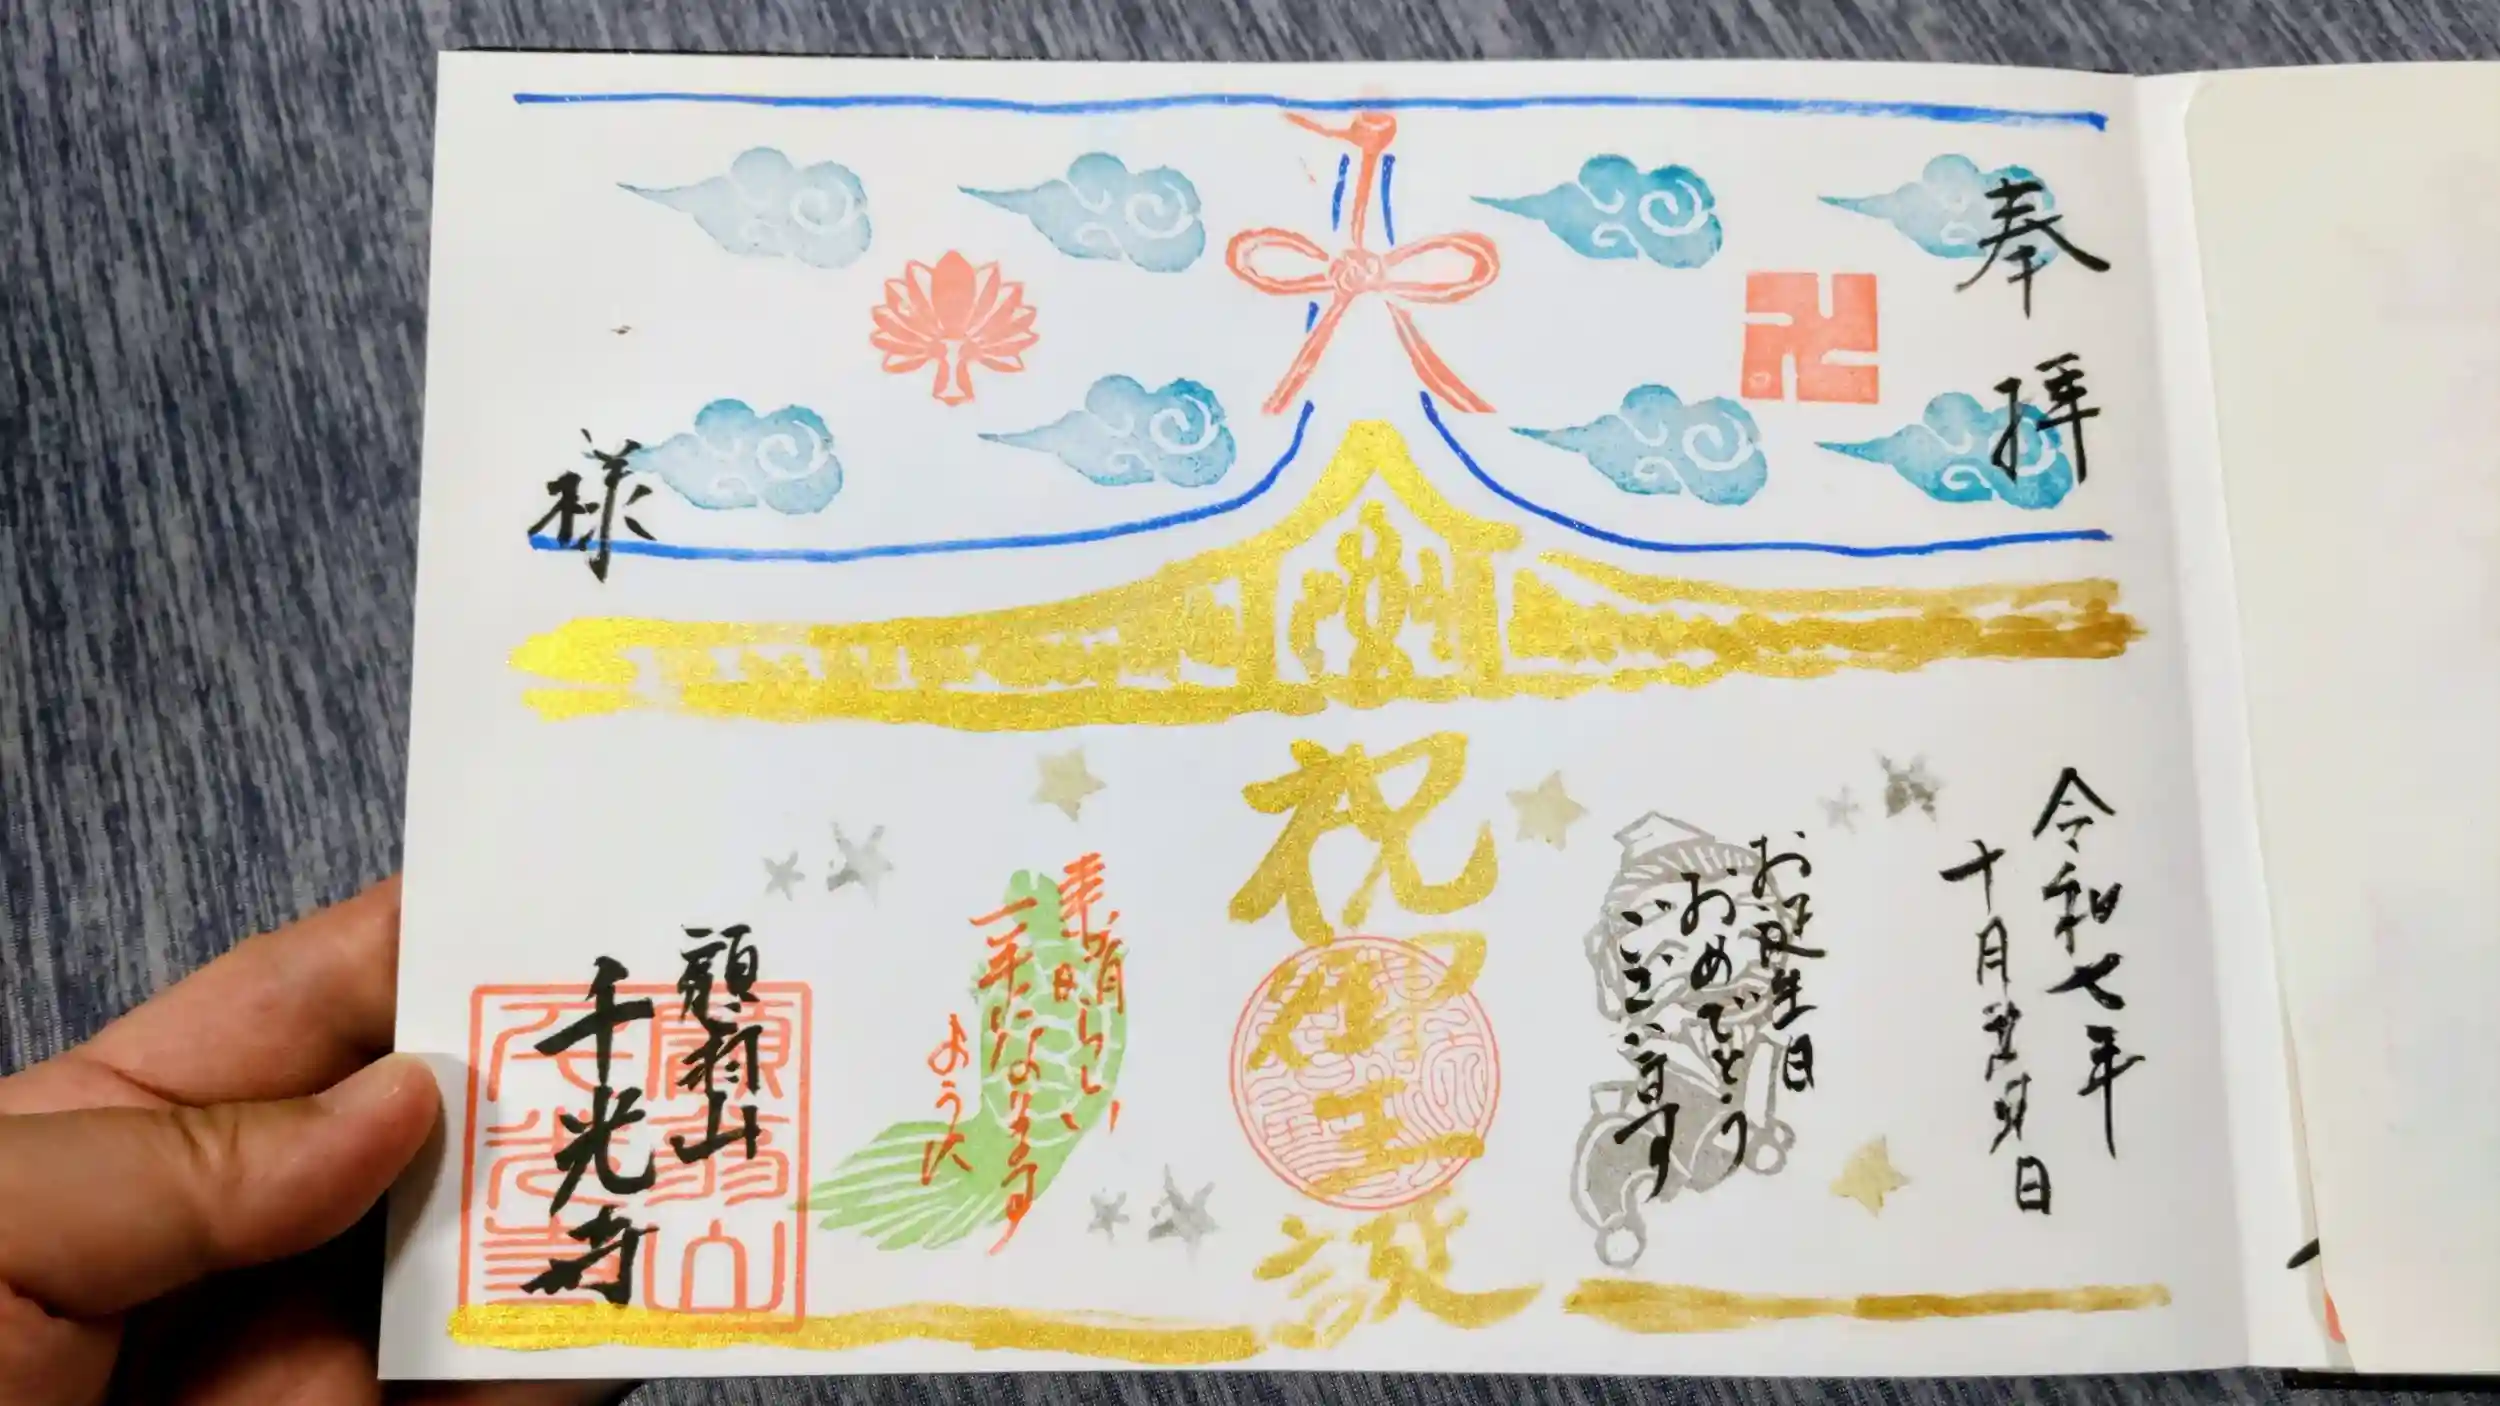 奉拝
令和七年
十月 日
お誕生日
おめでとう
ございます
祝御生誕
素晴らしい
一年になります
ように
願翁山
千光寺
願翁山
千光寺
様